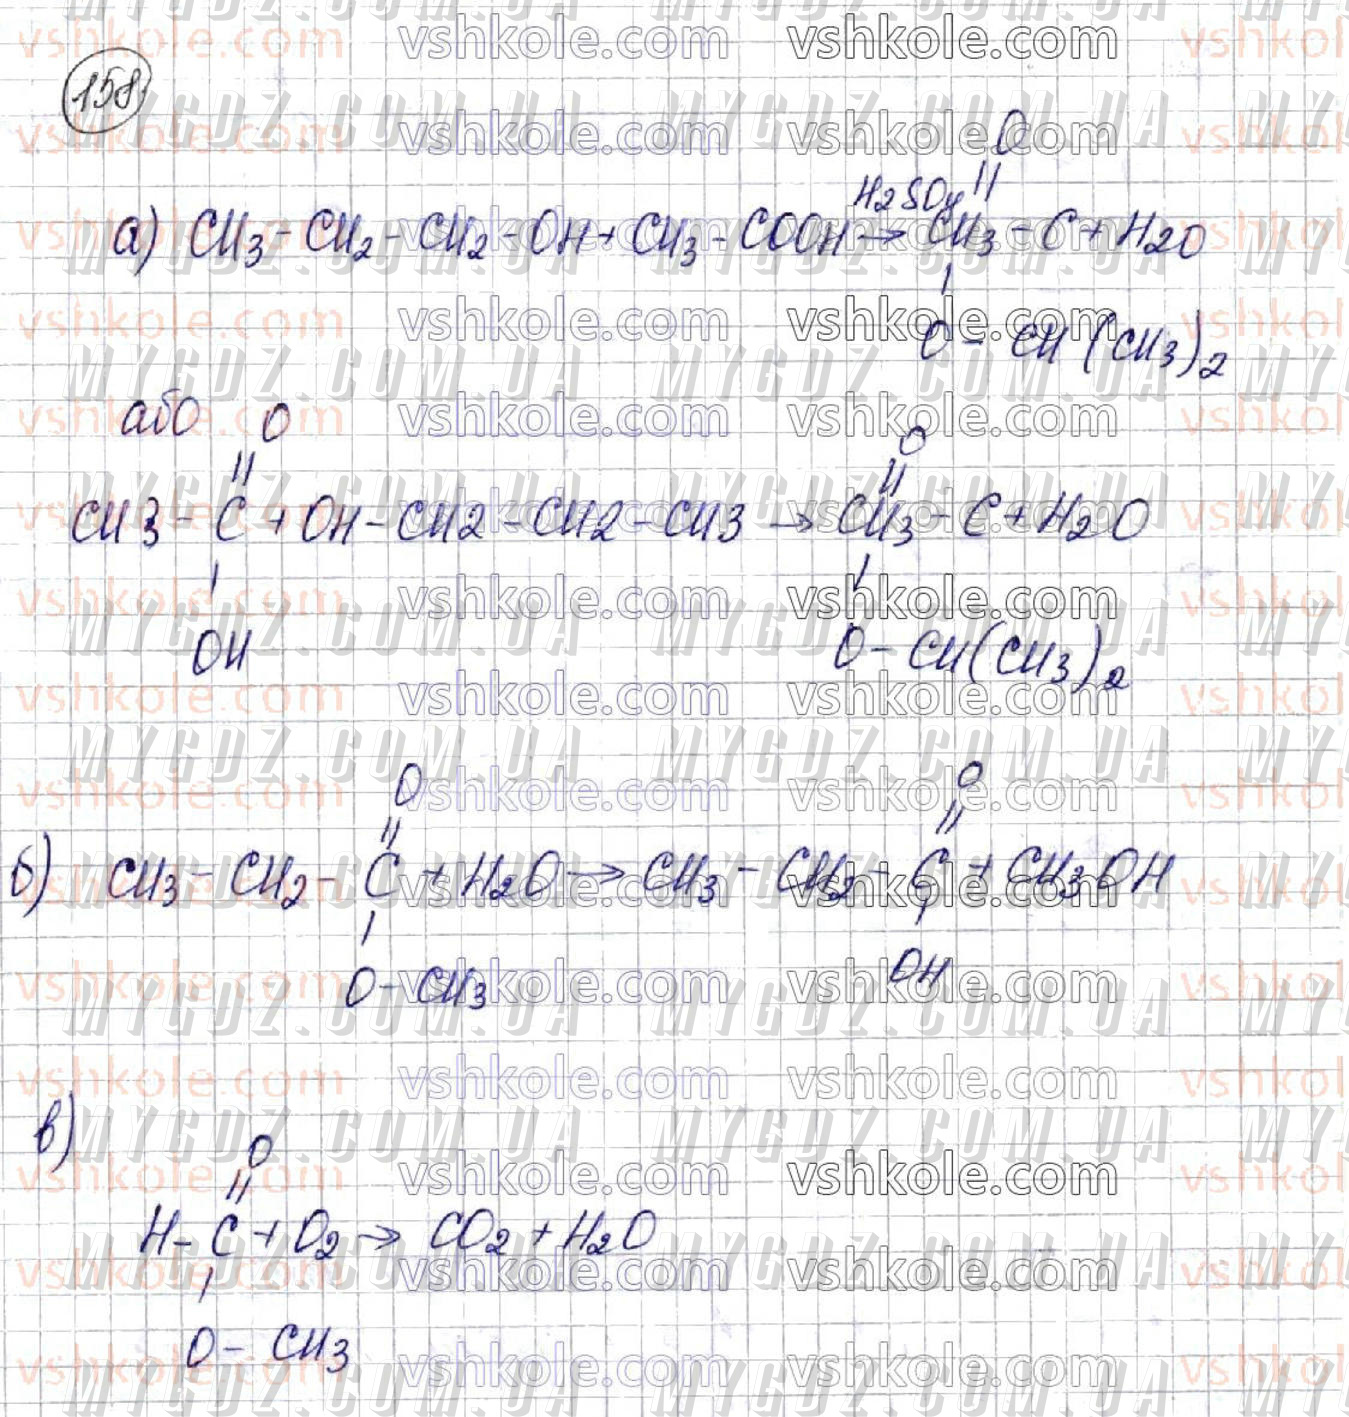 158
O
H2SO4 ||
а) CH3 - CH2 - CH2 - OH + CH3 - COOH → CH3 - C + H2O
|
O - CH (CH3)2
або O O
|| ||
CH3 - C + OH - CH2 - CH2 - CH3 → CH3 - C + H2O
| |
OH O - CH(CH3)2
O O
|| ||
б) CH3 - CH2 - C + H2O → CH3 - CH2 - C + CH3OH
| |
O - CH3 OH
в)
O
||
H - C + O2 → CO2 + H2O
|
O - CH3
vshkole.com
MYGDZ.COM.UA